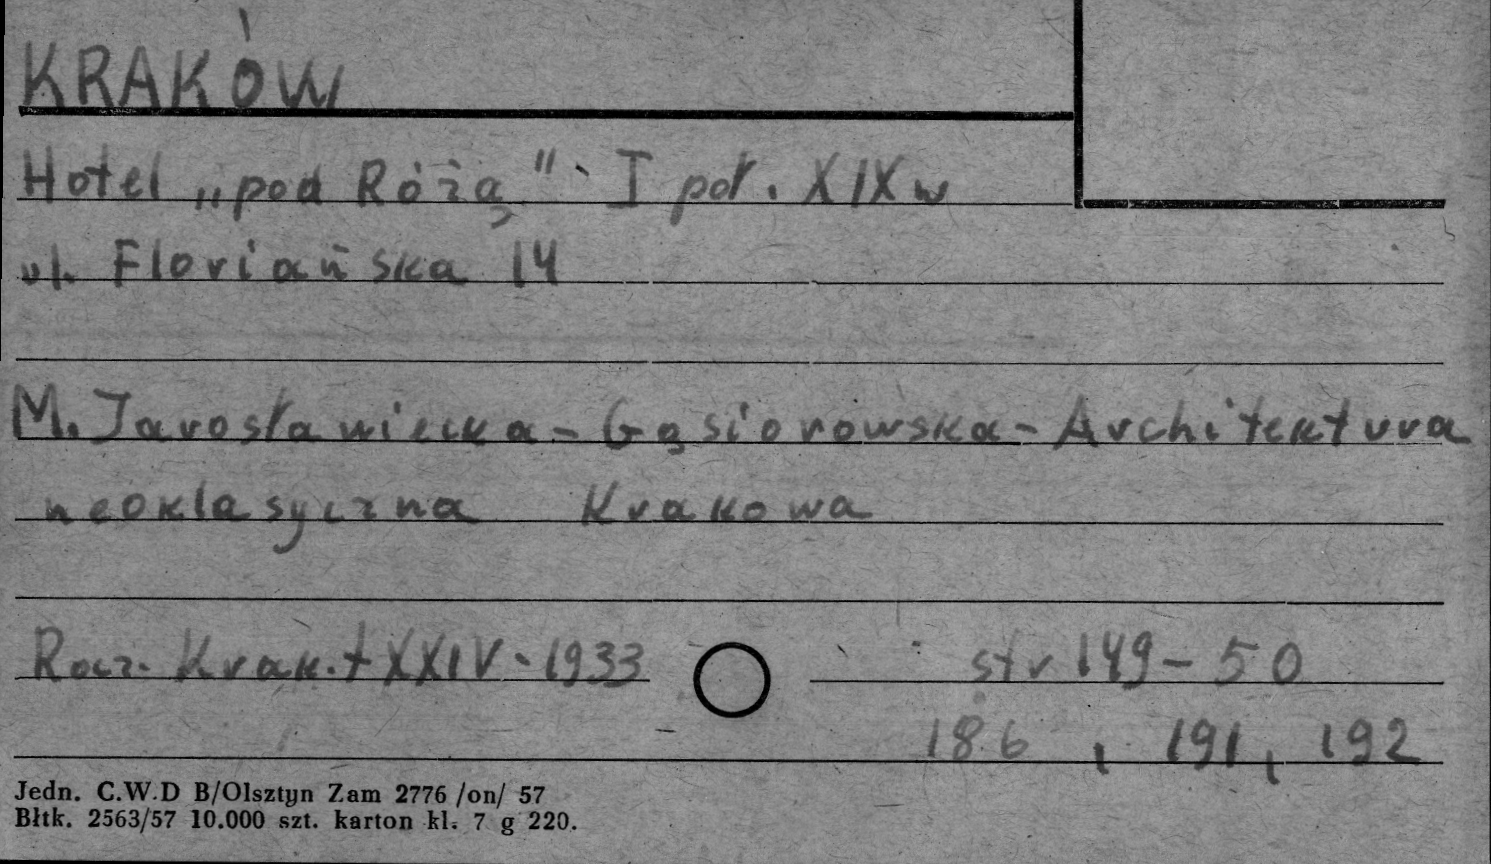 KRAKÓW
Hotel „pod Różą" I poł. XIX w
ul. Floriańska 14
M. Jarosławiecka - Gąsiorowska - Architektura
neoklasyczna Krakowa
Rocz. Krak. t XXIV - 1933
str 149-50
186, 191, 192
Jedn. C.W.D B/Olsztyn Zam 2776 /on/ 57
Błtk. 2563/57 10.000 szt. karton kl. 7 g 220.